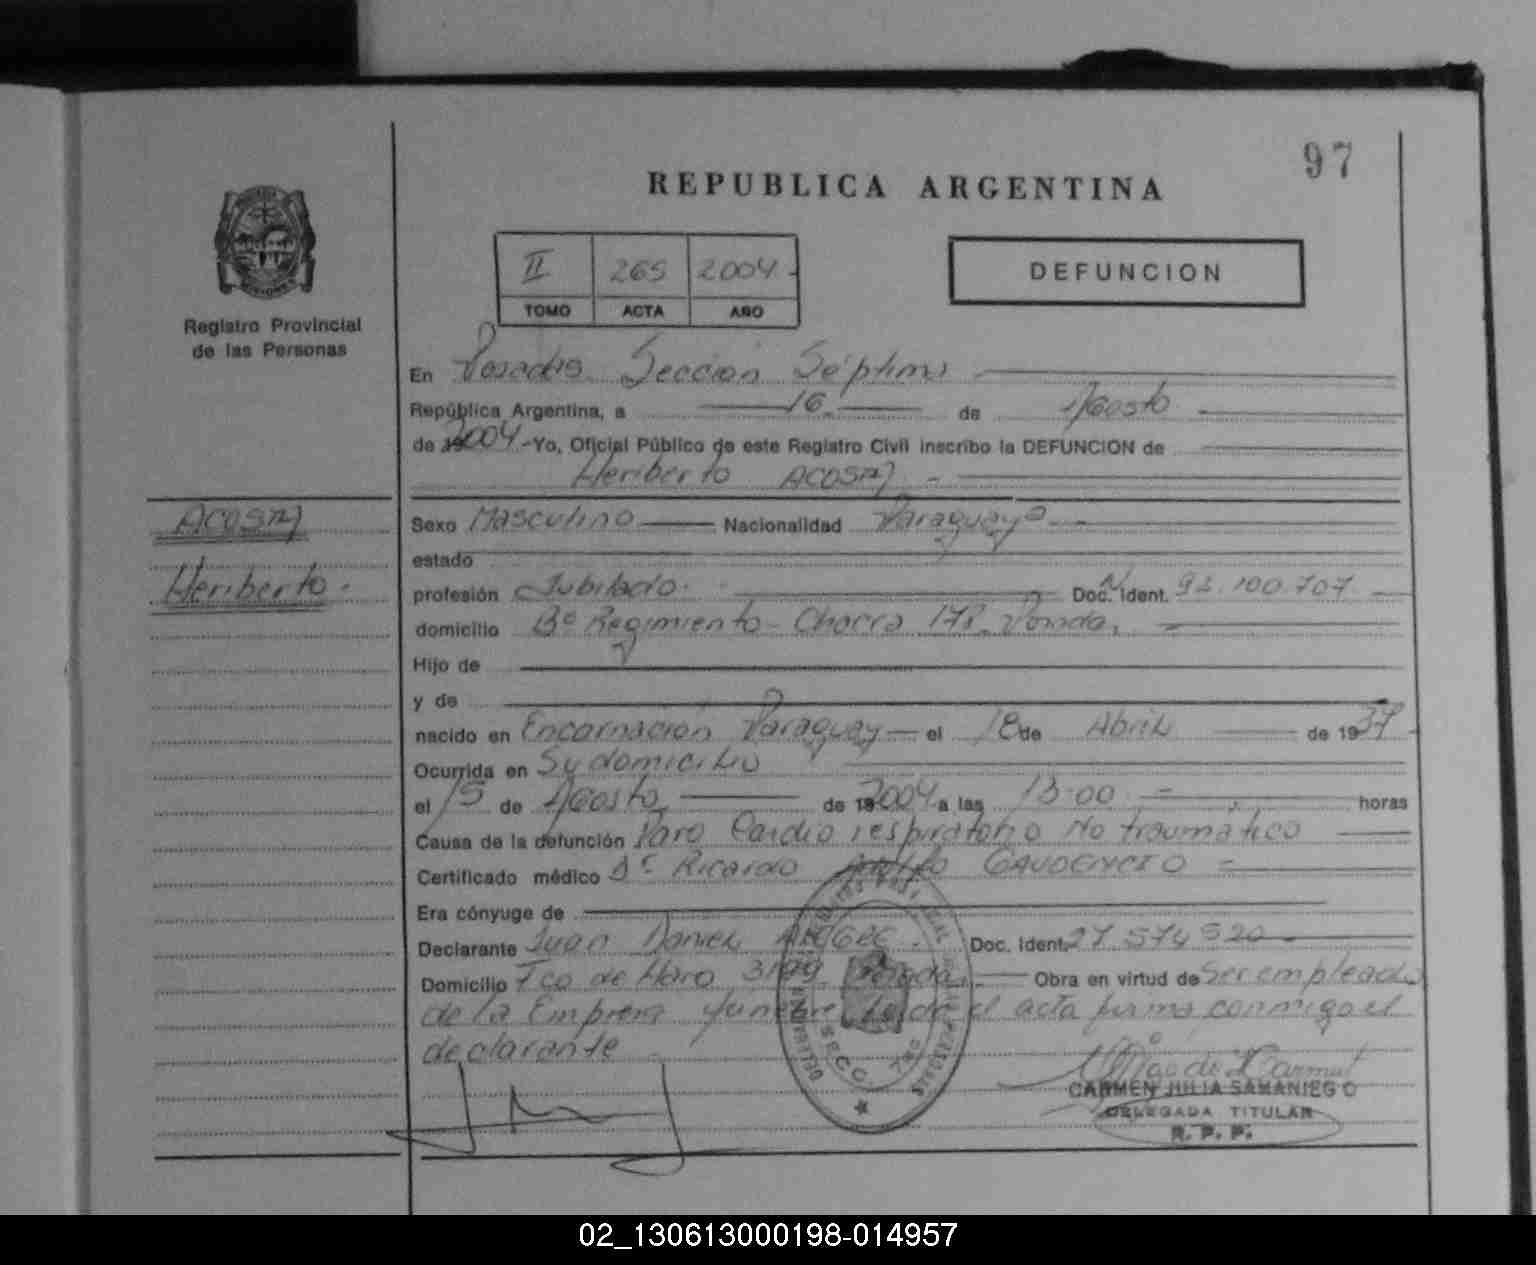 97
REPUBLICA ARGENTINA
II 265 2004
TOMO ACTA AÑO
DEFUNCION
Registro Provincial
de las Personas
En Posadas Sección Séptima
República Argentina, a 16 de Agosto
de 2004.-Yo, Oficial Público de este Registro Civil inscribo la DEFUNCION de
Heriberto ACOSTA
ACOSTA
Heriberto.
Sexo Masculino Nacionalidad Paraguaya
estado
profesión Jubilado. Doc. Ident. 93.100.707
domicilio Bº Regimiento - Chacra
Hijo de
y de
nacido en Encarnación Paraguay el 18 de Abril de 1937
Ocurrida en Su domicilio
el 15 de Agosto de 2004 a las 13:00 horas
Causa de la defunción Paro Cardio respiratorio No traumático
Certificado médico Dr Ricardo GAUDENCIO
Era cónyuge de
Declarante Juan Daniel Doc. Ident. 27.574.520
Domicilio Fco de Haro Obra en virtud de Ser empleado
de la Empresa fúnebre el acta firma conmigo el
declarante
SECC. 7MA
CARMEN JULIA SAMANIEGO
DELEGADA TITULAR
R. P. P.
02_130613000198-014957